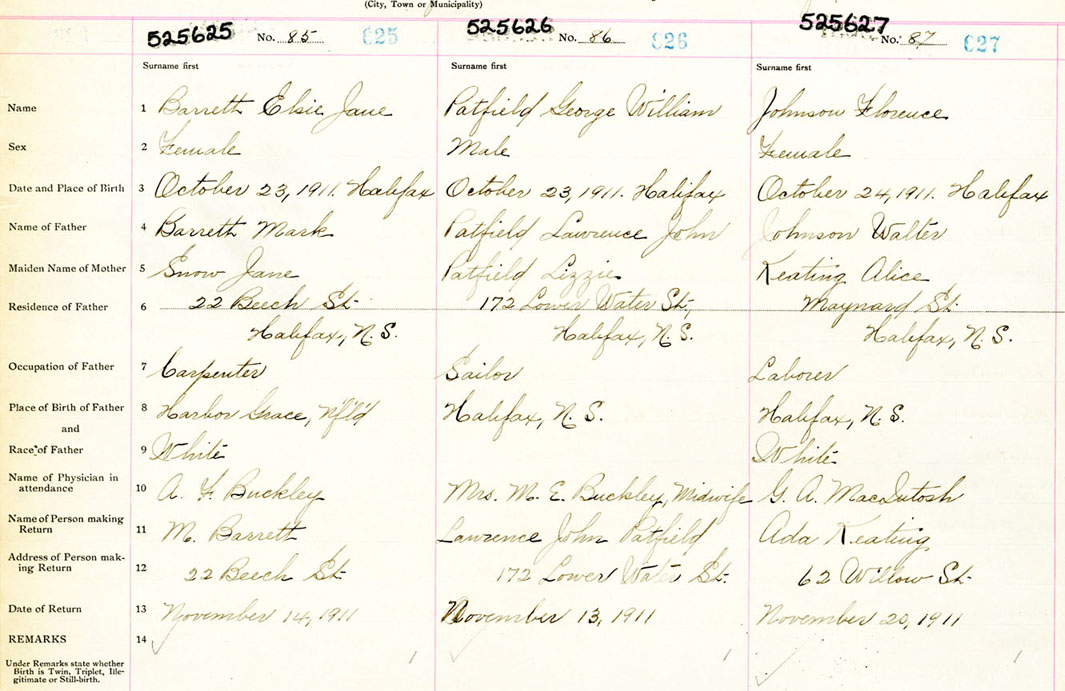 (City, Town or Municipality)
525625 No. 85 625 525626 No. 86 626 525627 No. 87 627
Surname first Surname first Surname first
Name 1 Barrett Elsie Jane Patfield George William Johnson Florence
Sex 2 Female Male Female
Date and Place of Birth 3 October 23, 1911. Halifax October 23, 1911. Halifax October 24, 1911. Halifax
Name of Father 4 Barrett Mark Patfield Lawrence John Johnson Walter
Maiden Name of Mother 5 Snow Jane Patfield Lizzie Keating Alice
Residence of Father 6 22 Beech St. 172 Lower Water St., Maynard St.
Halifax, N.S. Halifax, N.S. Halifax, N.S.
Occupation of Father 7 Carpenter Sailor Laborer
Place of Birth of Father 8 Harbor Grace, N'f'l'd Halifax, N.S. Halifax, N.S.
and
Race of Father 9 White White
Name of Physician in
attendance 10 A. F. Buckley Mrs. M. E. Buckley, Midwife G. A. MacIntosh
Name of Person making
Return 11 M. Barrett Lawrence John Patfield Ada Keating
Address of Person mak-
ing Return 12 22 Beech St. 172 Lower Water St. 62 Willow St.
Date of Return 13 November 14, 1911 November 13, 1911 November 20, 1911
REMARKS 14
Under Remarks state whether
Birth is Twin, Triplet, Ille-
gitimate or Still-birth.